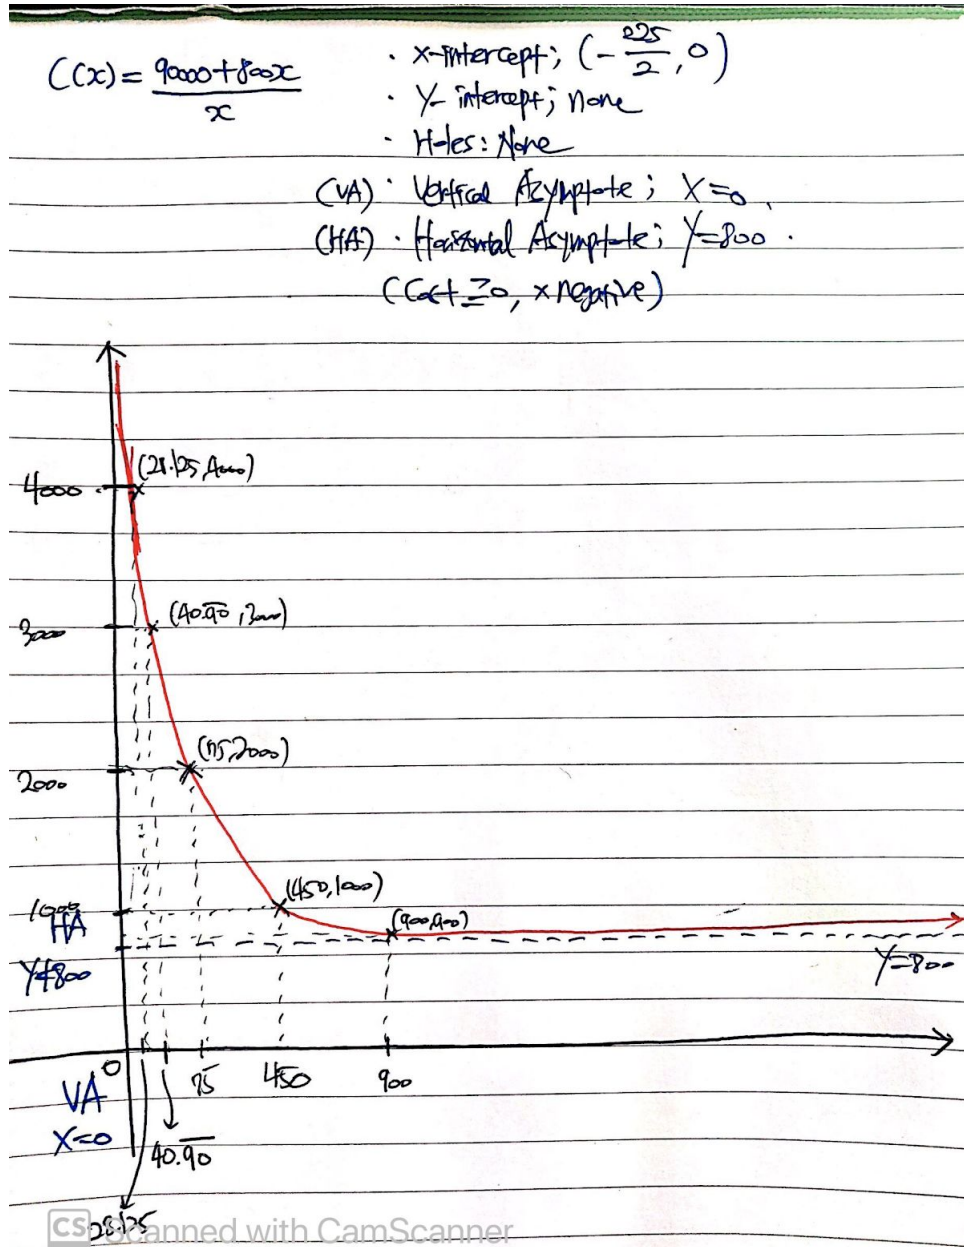 C(x) = 90000+800x / x
· x-intercept; (-225/2, 0)
· Y-intercept; none
· Holes: None
(VA) · Vertical Asymptote; X=0.
(HA) · Horizontal Asymptote; Y=800.
(Cost ≥0, x negative)
(28.125, 4000)
4000
(40.9̅0̅, 3000)
3000
(75, 2000)
2000
(450, 1000)
1000
HA
(900, 900)
Y=800
Y=800
0
75
450
900
VA
X=0
40.9̅0̅
28.125
CS Scanned with CamScanner